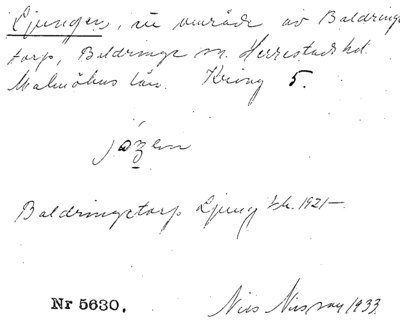 Ljungen, nu område av Baldringe
torp, Baldringe sn. Herrestads hd.
Malmöhus län. Kring 5.
Baldringetorp Ljung Ek. 1921-
Nr 5630. Nils Nilsson 1933.